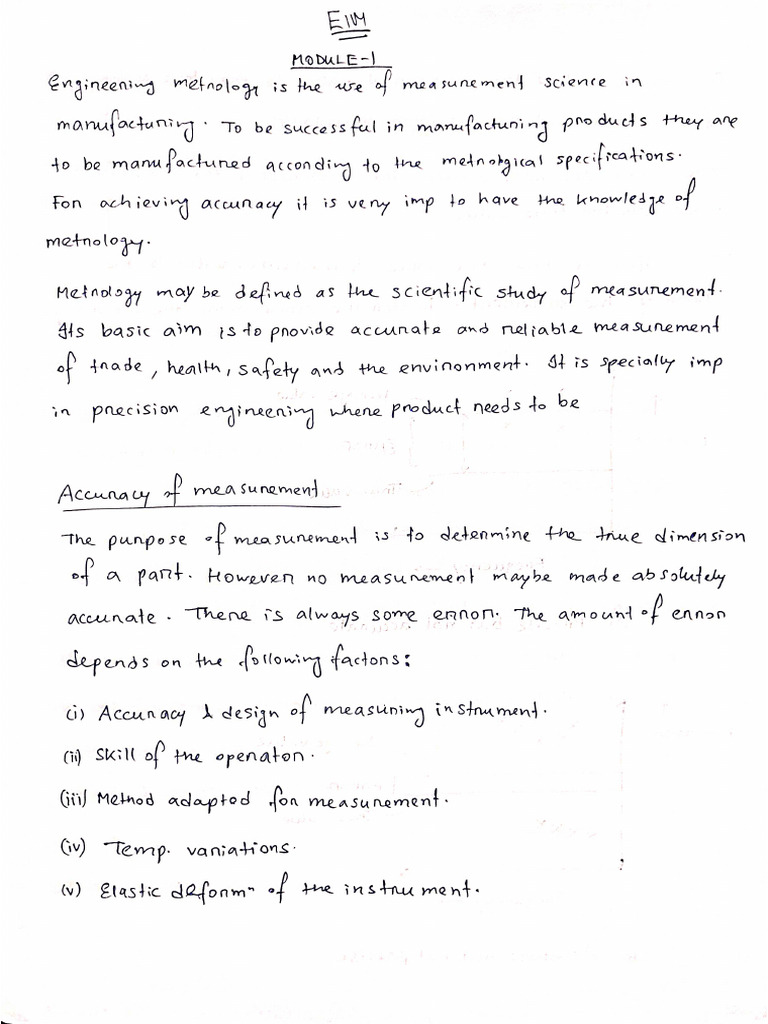 EIM
MODULE-1
Engineering metrology is the use of measurement science in
manufacturing. To be successful in manufacturing products they are
to be manufactured according to the metrological specifications.
For achieving accuracy it is very imp to have the knowledge of
metrology.
Metrology may be defined as the scientific study of measurement.
Its basic aim is to provide accurate and reliable measurement
of trade, health, safety and the environment. It is specially imp
in precision engineering where product needs to be
Accuracy of measurement
The purpose of measurement is to determine the true dimension
of a part. However no measurement maybe made absolutely
accurate. There is always some error. The amount of error
depends on the following factors:
(i) Accuracy & design of measuring instrument.
(ii) Skill of the operator.
(iii) Method adapted for measurement.
(iv) Temp. variations.
(v) Elastic deform^n of the instrument.